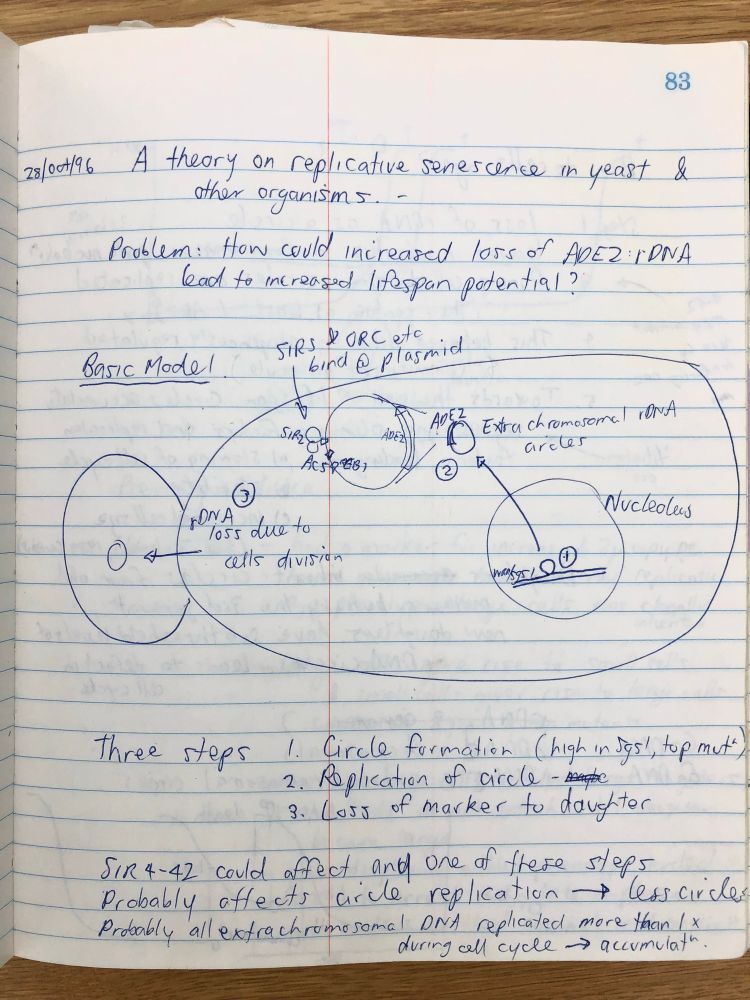 83
28/Oct/96 A theory on replicative senescence in yeast &
other organisms. -
Problem: How could increased loss of ADE2:rDNA
lead to increased lifespan potential?
Basic Model
SIRS & ORC etc
bind @ plasmid
SIR2
ACS
ADE2
ADE2
Extrachromosomal rDNA
circles
2
Nucleolus
1
3
rDNA
loss due to
cells division
Three steps 1. Circle formation (high in sgs1, top mutⁿ)
2. Replication of circle -
3. Loss of marker to daughter
SIR4-42 could affect and one of these steps
Probably affects circle replication → less circles
Probably all extrachromosomal DNA replicated more than 1x
during cell cycle → accumulatⁿ.